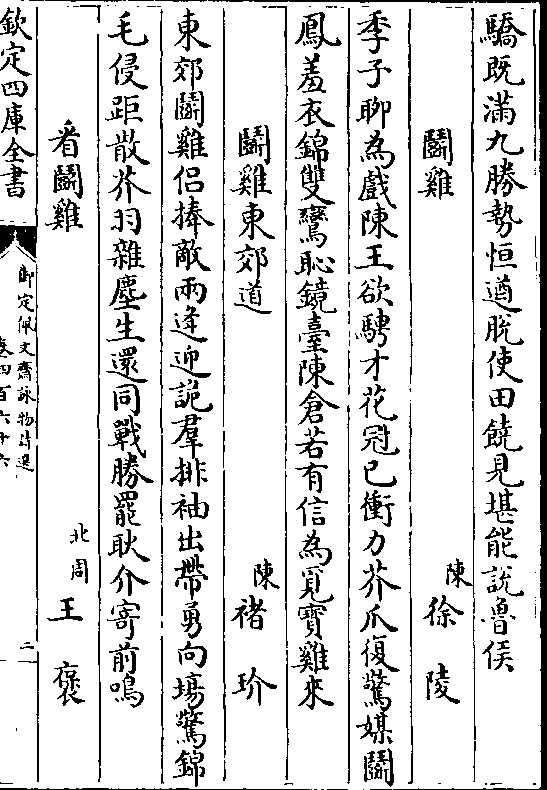 驕既滿九勝勢恒遒脫使田饒見堪能說魯侯
鬭雞 陳 徐陵
季子聊為戲陳王欲騁才花冠已衝力芥爪復驚媒鬭
鳳羞衣錦雙鸞恥鏡臺陳倉若有信為覓寶雞來
鬭雞東郊道 陳 褚玠
東郊鬭雞侣捧敵兩逢迎詭羣排袖出帶勇向場驚錦
毛侵距散芥羽雜塵生還同戰勝罷耿介寄前鳴
看鬭雞 北周 王褒
欽定四庫全書 御定佩文齋詠物詩選 卷四百六十六 二